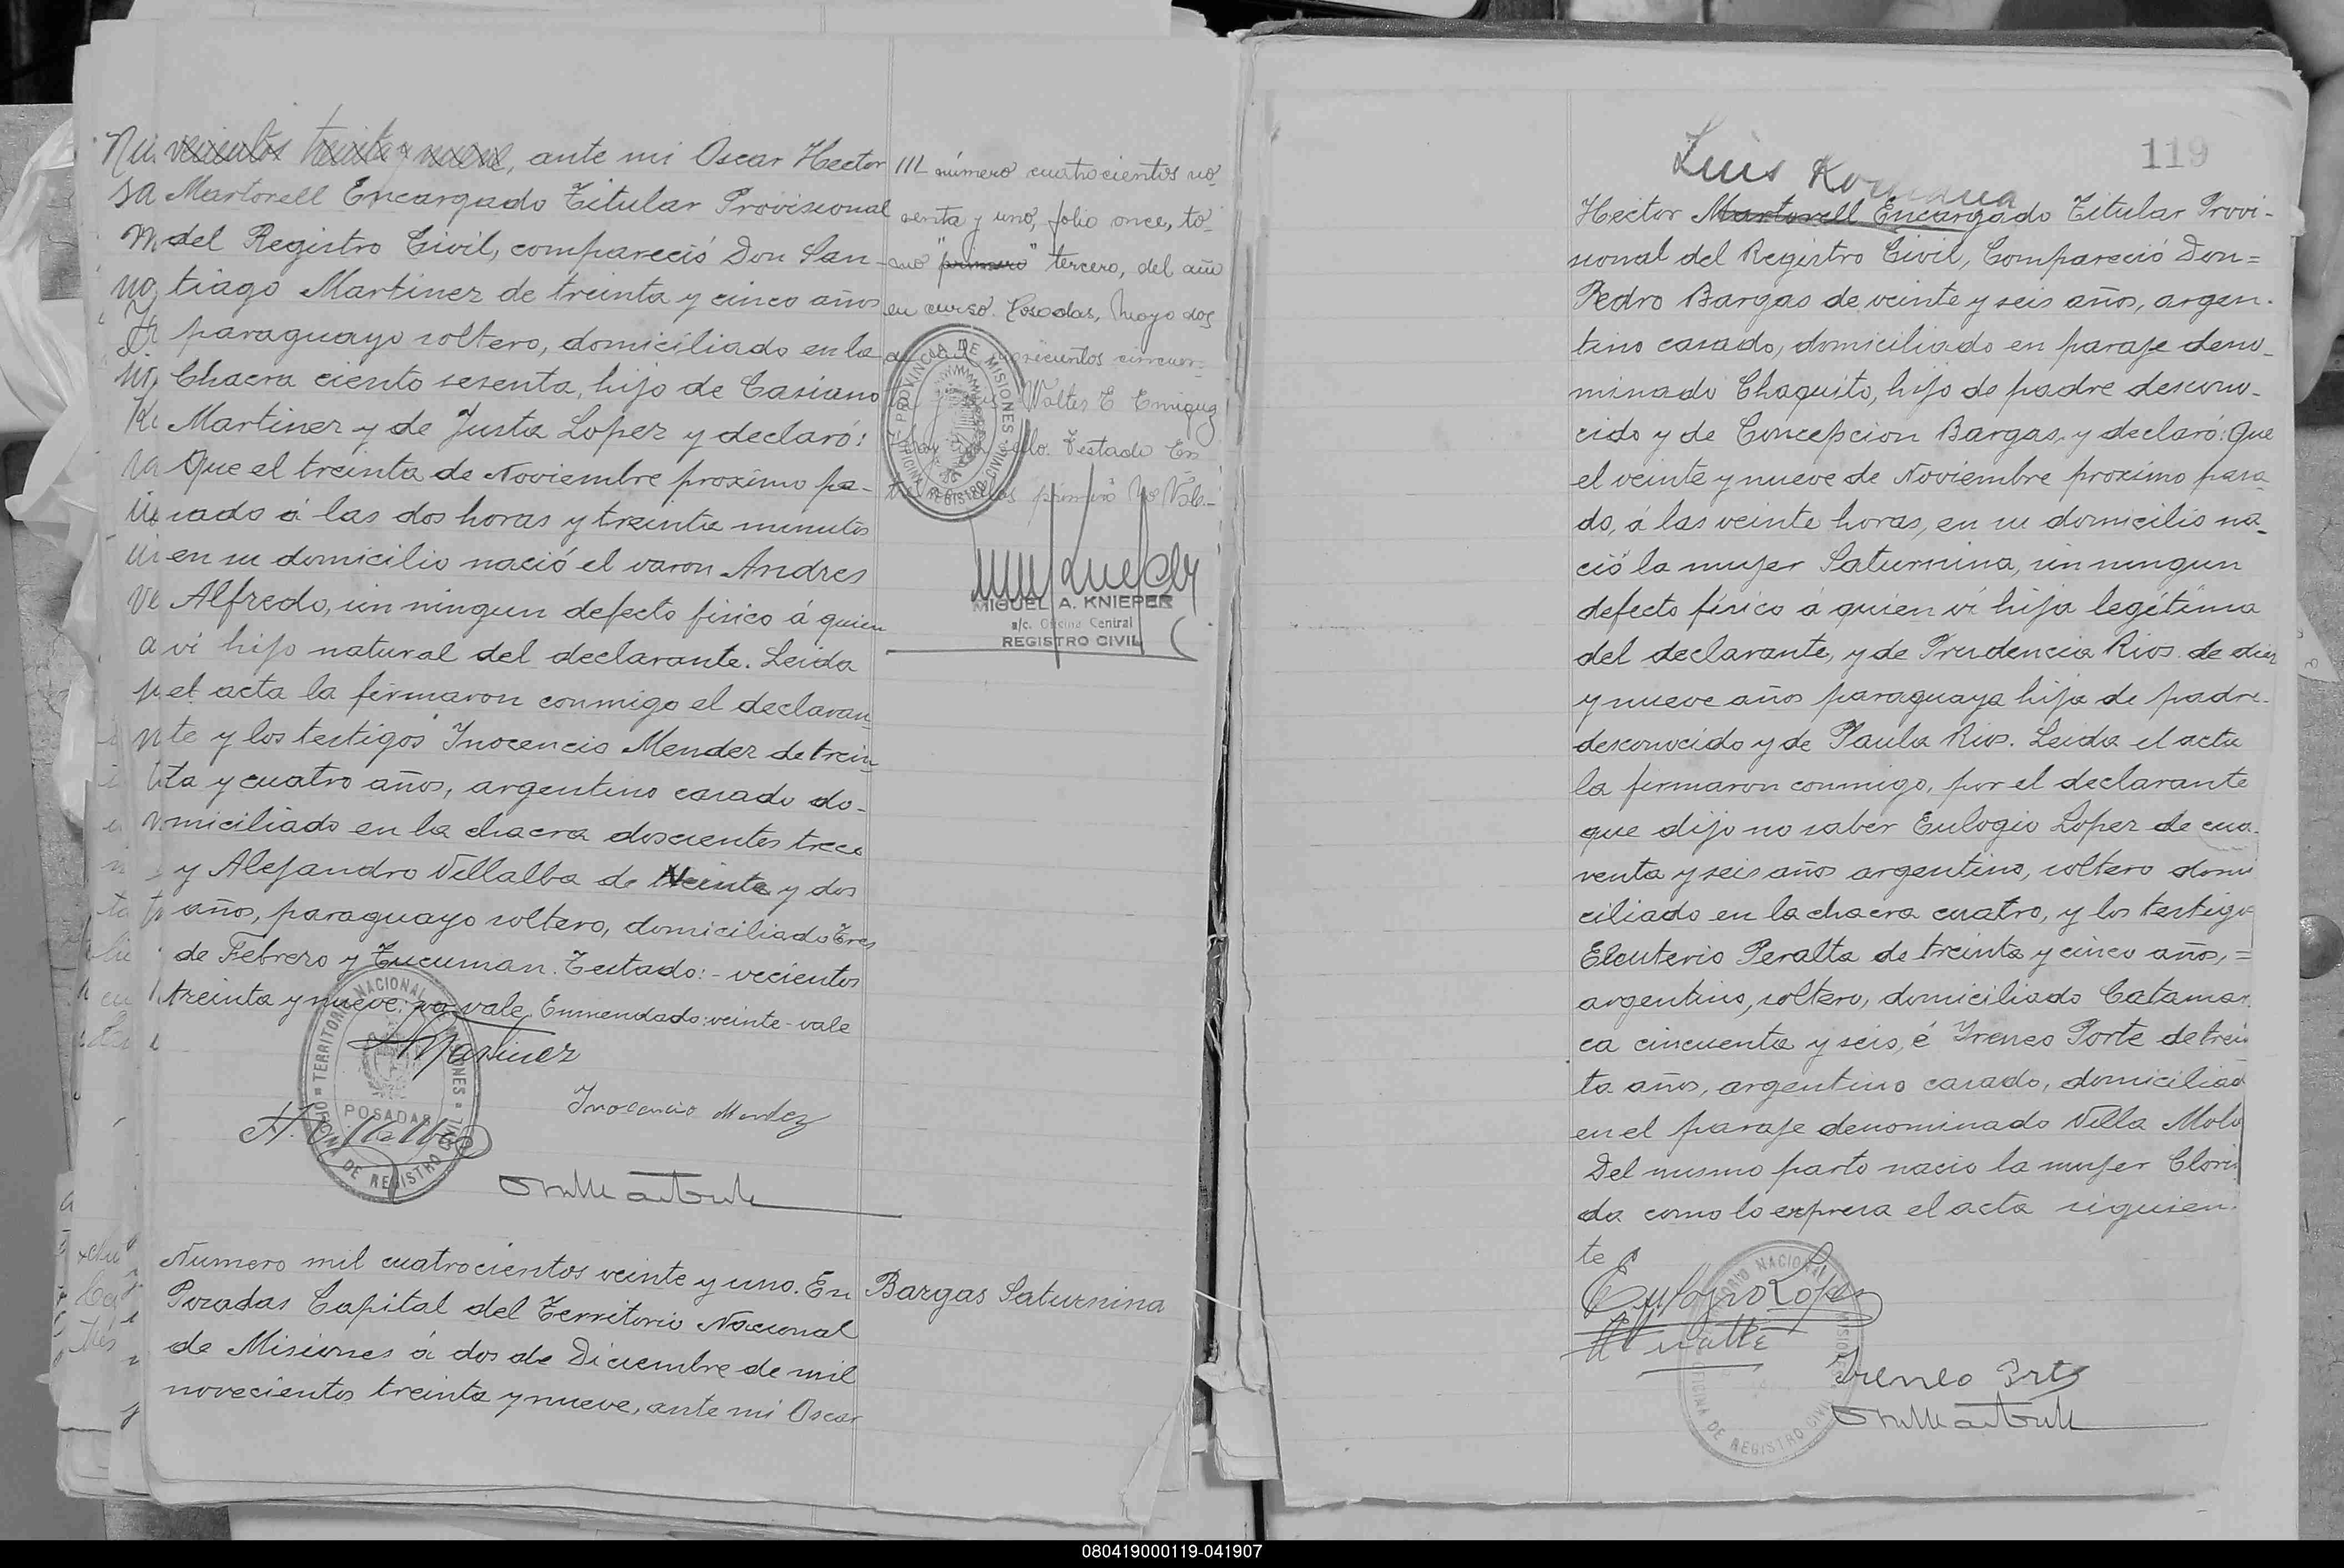 vecientos treinta y nueve, ante mi Oscar Hector
Martorell Encargado Titular Provisional
del Registro Civil, compareció Don San-
tiago Martinez de treinta y cinco años
paraguayo soltero, domiciliado en la
Chacra ciento sesenta, hijo de Casiano
Martinez y de Justa Lopez y declaró:
Que el treinta de Noviembre proximo pa-
sado á las dos horas y treinta minutos
en su domicilio nació el varon Andres
Alfredo, sin ningun defecto fisico á quien
vi hijo natural del declarante. Leida
el acta la firmaron conmigo el declaran-
te y los testigos Inocencio Mendez de trein-
ta y cuatro años, argentino casado do-
miciliado en la chacra doscientos trece
y Alejandro Villalba de veinte y dos
años, paraguayo soltero, domiciliado Tres
de Febrero y Tucuman. Testado: - vecientos
treinta y nueve: no vale. Enmendado: veinte - vale
Martinez
Inocencio Mendez
A. Villalba
TERRITORIO NACIONAL MISIONES
POSADAS
OFICINA DE REGISTRO CIVIL
Numero mil cuatrocientos veinte y uno. En
Posadas Capital del Territorio Nacional
de Misiones á dos de Diciembre de mil
novecientos treinta y nueve, ante mi Oscar
III número cuatrocientos no-
venta y uno, folio once, to-
mo "primero" tercero, del año
en curso. Posadas, Mayo dos
novecientos cincuen-
Walter E Enriquez
Hay un sello. Testado En
primero No Vale-
PROVINCIA DE MISIONES
OFICINA REGISTRO CIVIL
MIGUEL A. KNIEPER
a/c. Oficina Central
REGISTRO CIVIL
Bargas Saturnina
119
Luis
Hector Martorell Encargado Titular Provi-
sional del Registro Civil, Compareció Don=
Pedro Bargas de veinte y seis años, argen-
tino casado, domiciliado en paraje deno-
minado Chaquito, hijo de padre descono-
cido y de Concepcion Bargas, y declaró: Que
el veinte y nueve de Noviembre proximo pasa-
do, á las veinte horas, en su domicilio na-
ció la mujer Saturnina, sin ningun
defecto fisico á quien vi hija legitima
del declarante, y de Prudencia Rios de diez
y nueve años paraguaya hija de padre
desconocido y de Paula Rios. Leida el acta
la firmaron conmigo, por el declarante
que dijo no saber Eulogio Lopez de cua-
renta y seis años argentino, soltero domi
ciliado en la chacra cuatro, y los testigos
Eleuterio Peralta de treinta y cinco años, =
argentino, soltero, domiciliado Catamar
ca cincuenta y seis, é Ireneo Porte de trein
ta años, argentino casado, domiciliado
en el paraje denominado Villa Molo
Del mismo parto nacio la mujer Clorin
da como lo expresa el acta siguien-
te
Eulogio Lopez
Ireneo Porte
TERRITORIO NACIONAL MISIONES
OFICINA DE REGISTRO CIVIL
080419000119-041907